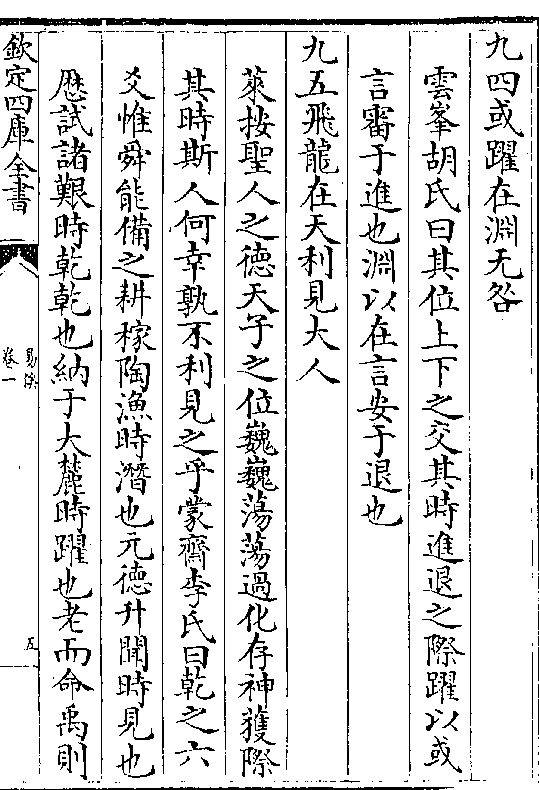 九四或躍在淵无咎
雲峯胡氏曰其位上下之交其時進退之際躍以或
言審于進也淵以在言安于退也
九五飛龍在天利見大人
萊按聖人之德天子之位巍巍蕩蕩過化存神獲際
其時斯人何幸孰不利見之乎蒙齋李氏曰乾之六
爻惟舜能備之耕稼陶漁時潛也元德升聞時見也
歴試諸艱時乾乾也納于大麓時躍也老而命禹則
欽定四庫全書
卷一
五